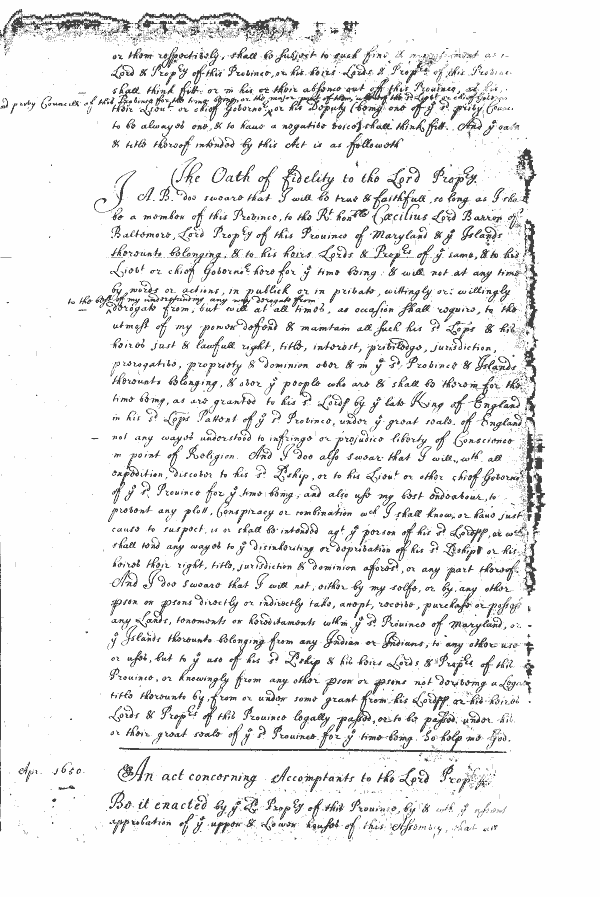 or them respectively, shall be subject to such fine & as
Lord & Propry of this Province, or his heirs Lords & Proprs of this Province
shall think fitt. or in his or their absence out off this Province, as his
nd pryvy Councell of this Province for the time being or the major part of them
their Lieut or chief Governor, or his Deputy (being one of ye sd privy
to be alwayes one, & to have a negative voice) shall think fitt. And ye oath
& title thereof intended by this Act is as followeth
The Oath of fidelity to the Lord Propry.
I A. B. doe sweare that I will be true & faithfull, so long as I shall
be a member of this Province, to the Rt honble Cæcilius Lord Barron of
Baltemore, Lord Propry of this Province of Maryland & ye Islands
thereunto belonging, & to his heirs Lords & Proprs of ye same, & to his
Lieut or chief Governor here for ye time being. & will not at any time
by words or actions, in publick or in private, wittingly or willingly
to the best of my understanding any way derogate from
derogate from, but will at all times, as occasion shall require, to the
utmost of my power deffend & maintain all such his sd Lops & his
heires just & lawfull right, title, interest, priviledge, jurisdiction,
prerogative, propriety & dominion over & in ye sd Province & Islands
thereunto belonging, & over ye people who are & shall be therein for the
time being, as are granted to his sd Lordp by ye late King of England
in his sd Lops Pattent of ye sd Province, under ye great seale of England
not any wayes understood to infringe or prejudice liberty of Conscience
in point of Religion. And I doe also sweare that I will, with all
expedition, discover to his sd Lship, or to his Lieut or other chief Governor
of ye sd Province for ye time being, and also use my best endeavour, to
prevent any plott, Conspiracy or combination wch I shall know, or have just
cause to suspect, is or shall be intended agt ye person of his sd Lordpp, or wch
shall tend any wayes to ye disinheriting or deprivation of his sd Lship or his
heires their right, title, jurisdiction & dominion aforesd, or any part thereof.
And I doe sweare that I will not, either by my selfe, or by, any other
pson or psons directly or indirectly take, accept, receive, purchase or possess
any Lands, tenements or hereditaments wthin ye sd Province of Maryland, or
ye Islands thereunto belonging from any Indian or Indians, to any other use
or uses, but to ye use of his sd Lship & his heirs Lords & Proprs of this
Province, or knowingly from any other pson or psons not deriveing a Legal
title thereunto by, from or under some grant from his Lordpp or his heires
Lords & Proprs of this Province legally passed, or to be passed under his
or their great seale of ye sd Province for ye time being. So help me God.
Apr. 1650.
An act concerning Accomptants to the Lord Propry
Be it enacted by ye Ld Propry of this Province, by & with ye assent
approbation of ye upper & Lower houses of this Assembly, that all